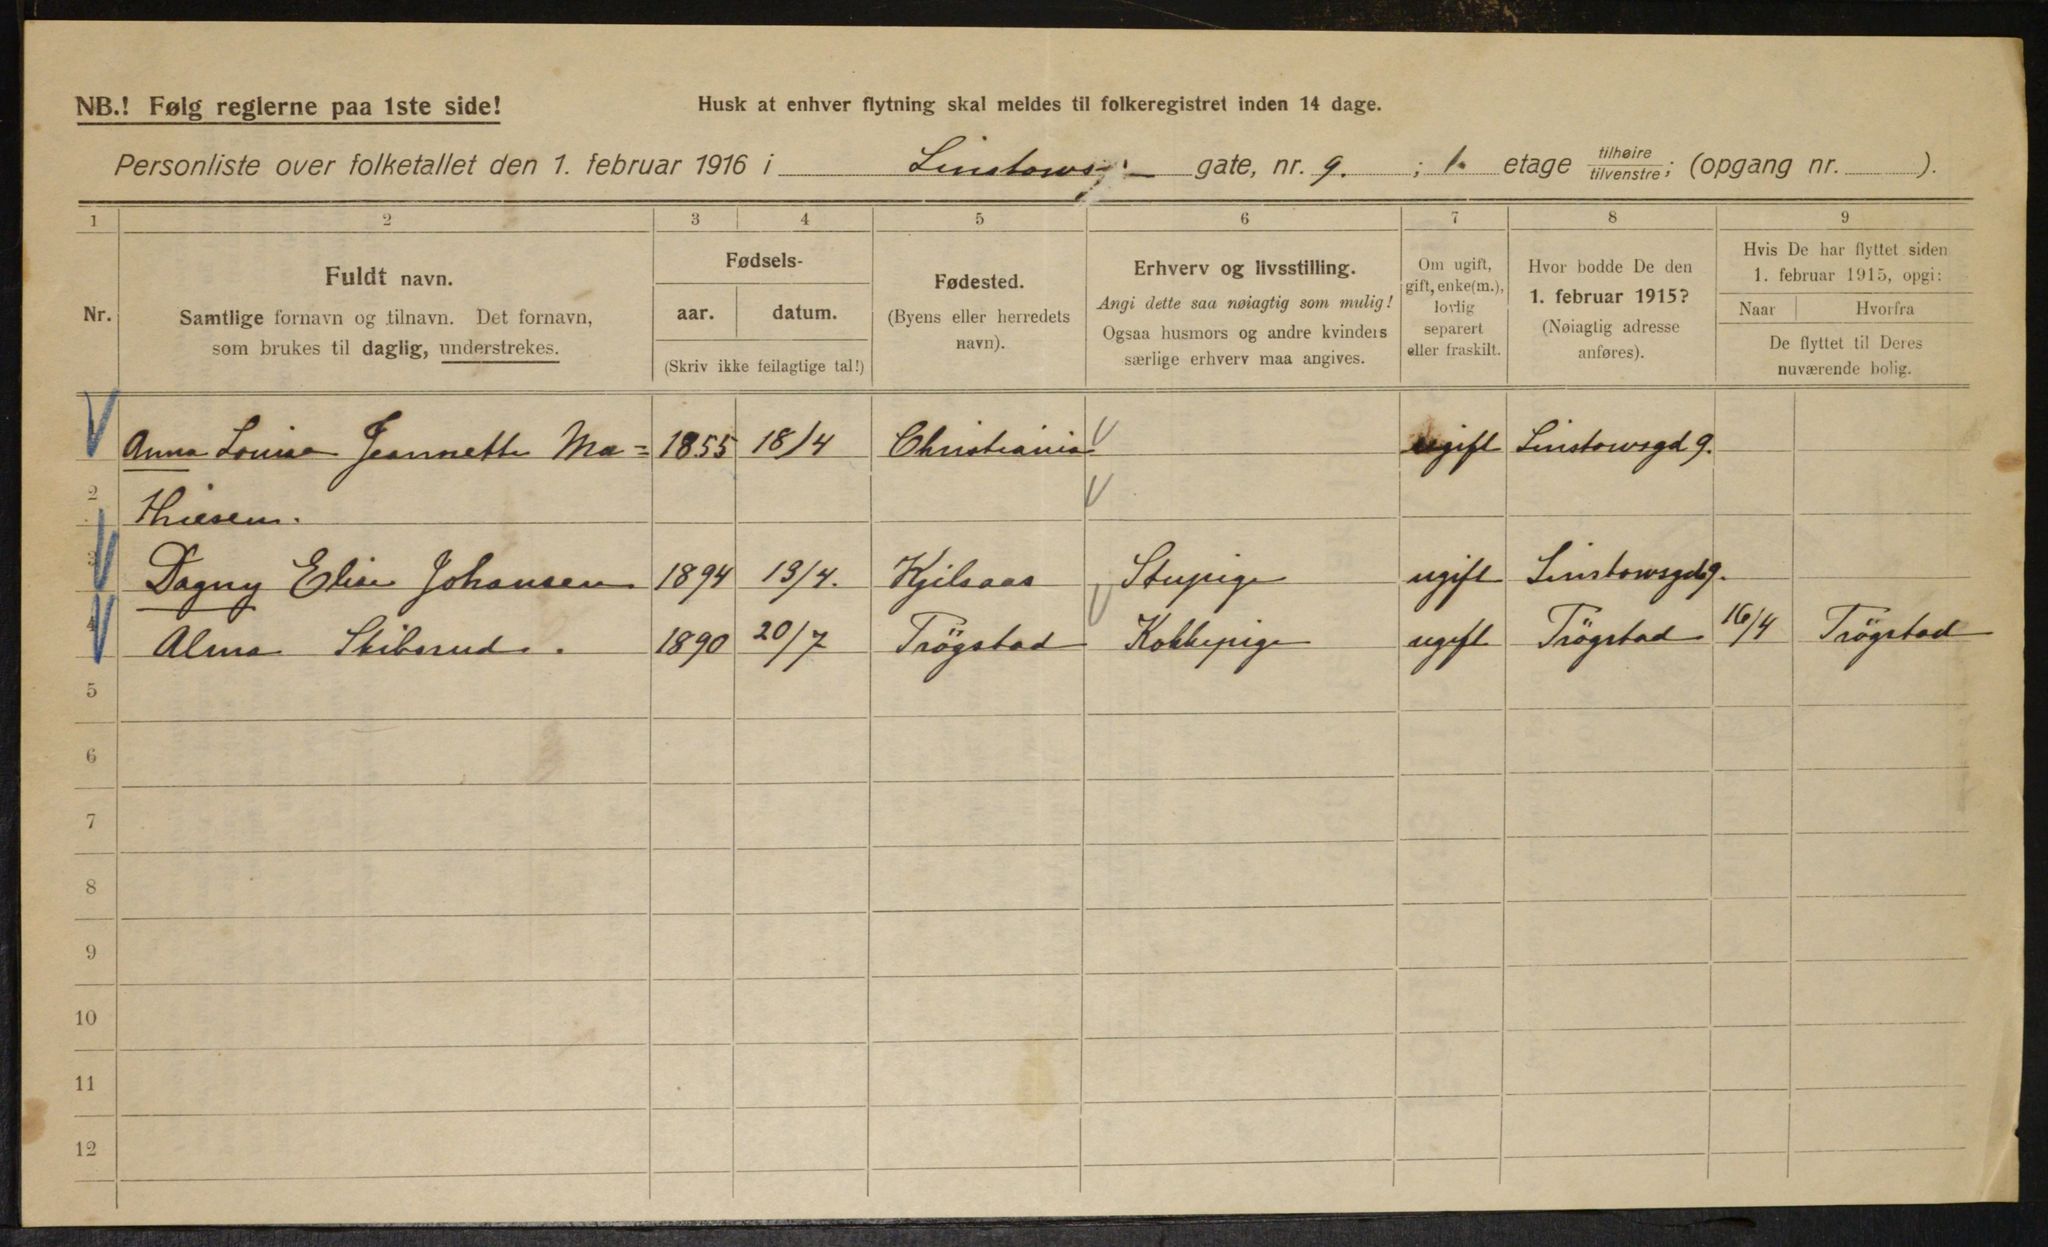 NB.! Følg reglerne paa 1ste side!
Husk at enhver flytning skal meldes til folkeregistret inden 14 dage.
Personliste over folketallet den 1. februar 1916 i Linstows gate, nr. 9. ; 1. etage tilhøire tilvenstre; (opgang nr. ).
1 2 3 4 5 6 7 8 9
Nr.
Fuldt navn.
Samtlige fornavn og tilnavn. Det fornavn,
som brukes til daglig, understrekes.
Fødsels-
aar. datum.
(Skriv ikke feilagtige tal!)
Fødested.
(Byens eller herredets
navn).
Erhverv og livsstilling.
Angi dette saa nøiagtig som mulig!
Ogsaa husmors og andre kvinders
særlige erhverv maa angives.
Om ugift,
gift, enke(m.),
lovlig
separert
eller fraskilt.
Hvor bodde De den
1. februar 1915?
(Nøiagtig adresse
anføres).
Hvis De har flyttet siden
1. februar 1915, opgi:
Naar Hvorfra
De flyttet til Deres
nuværende bolig.
Anna Louise Jeannette Ma= 1855 18/4 Christiania ugift Linstowsgd 9.
2 thiesen.
3 Dagny Elise Johansen 1894 13/4. Kjelsaas Stupige ugift Linstowsgd 9.
4 Alma Skibsrud. 1890 20/7 Trögstad Kokkepige ugift Trögstad 16/4 Trögstad
5
6
7
8
9
10
11
12